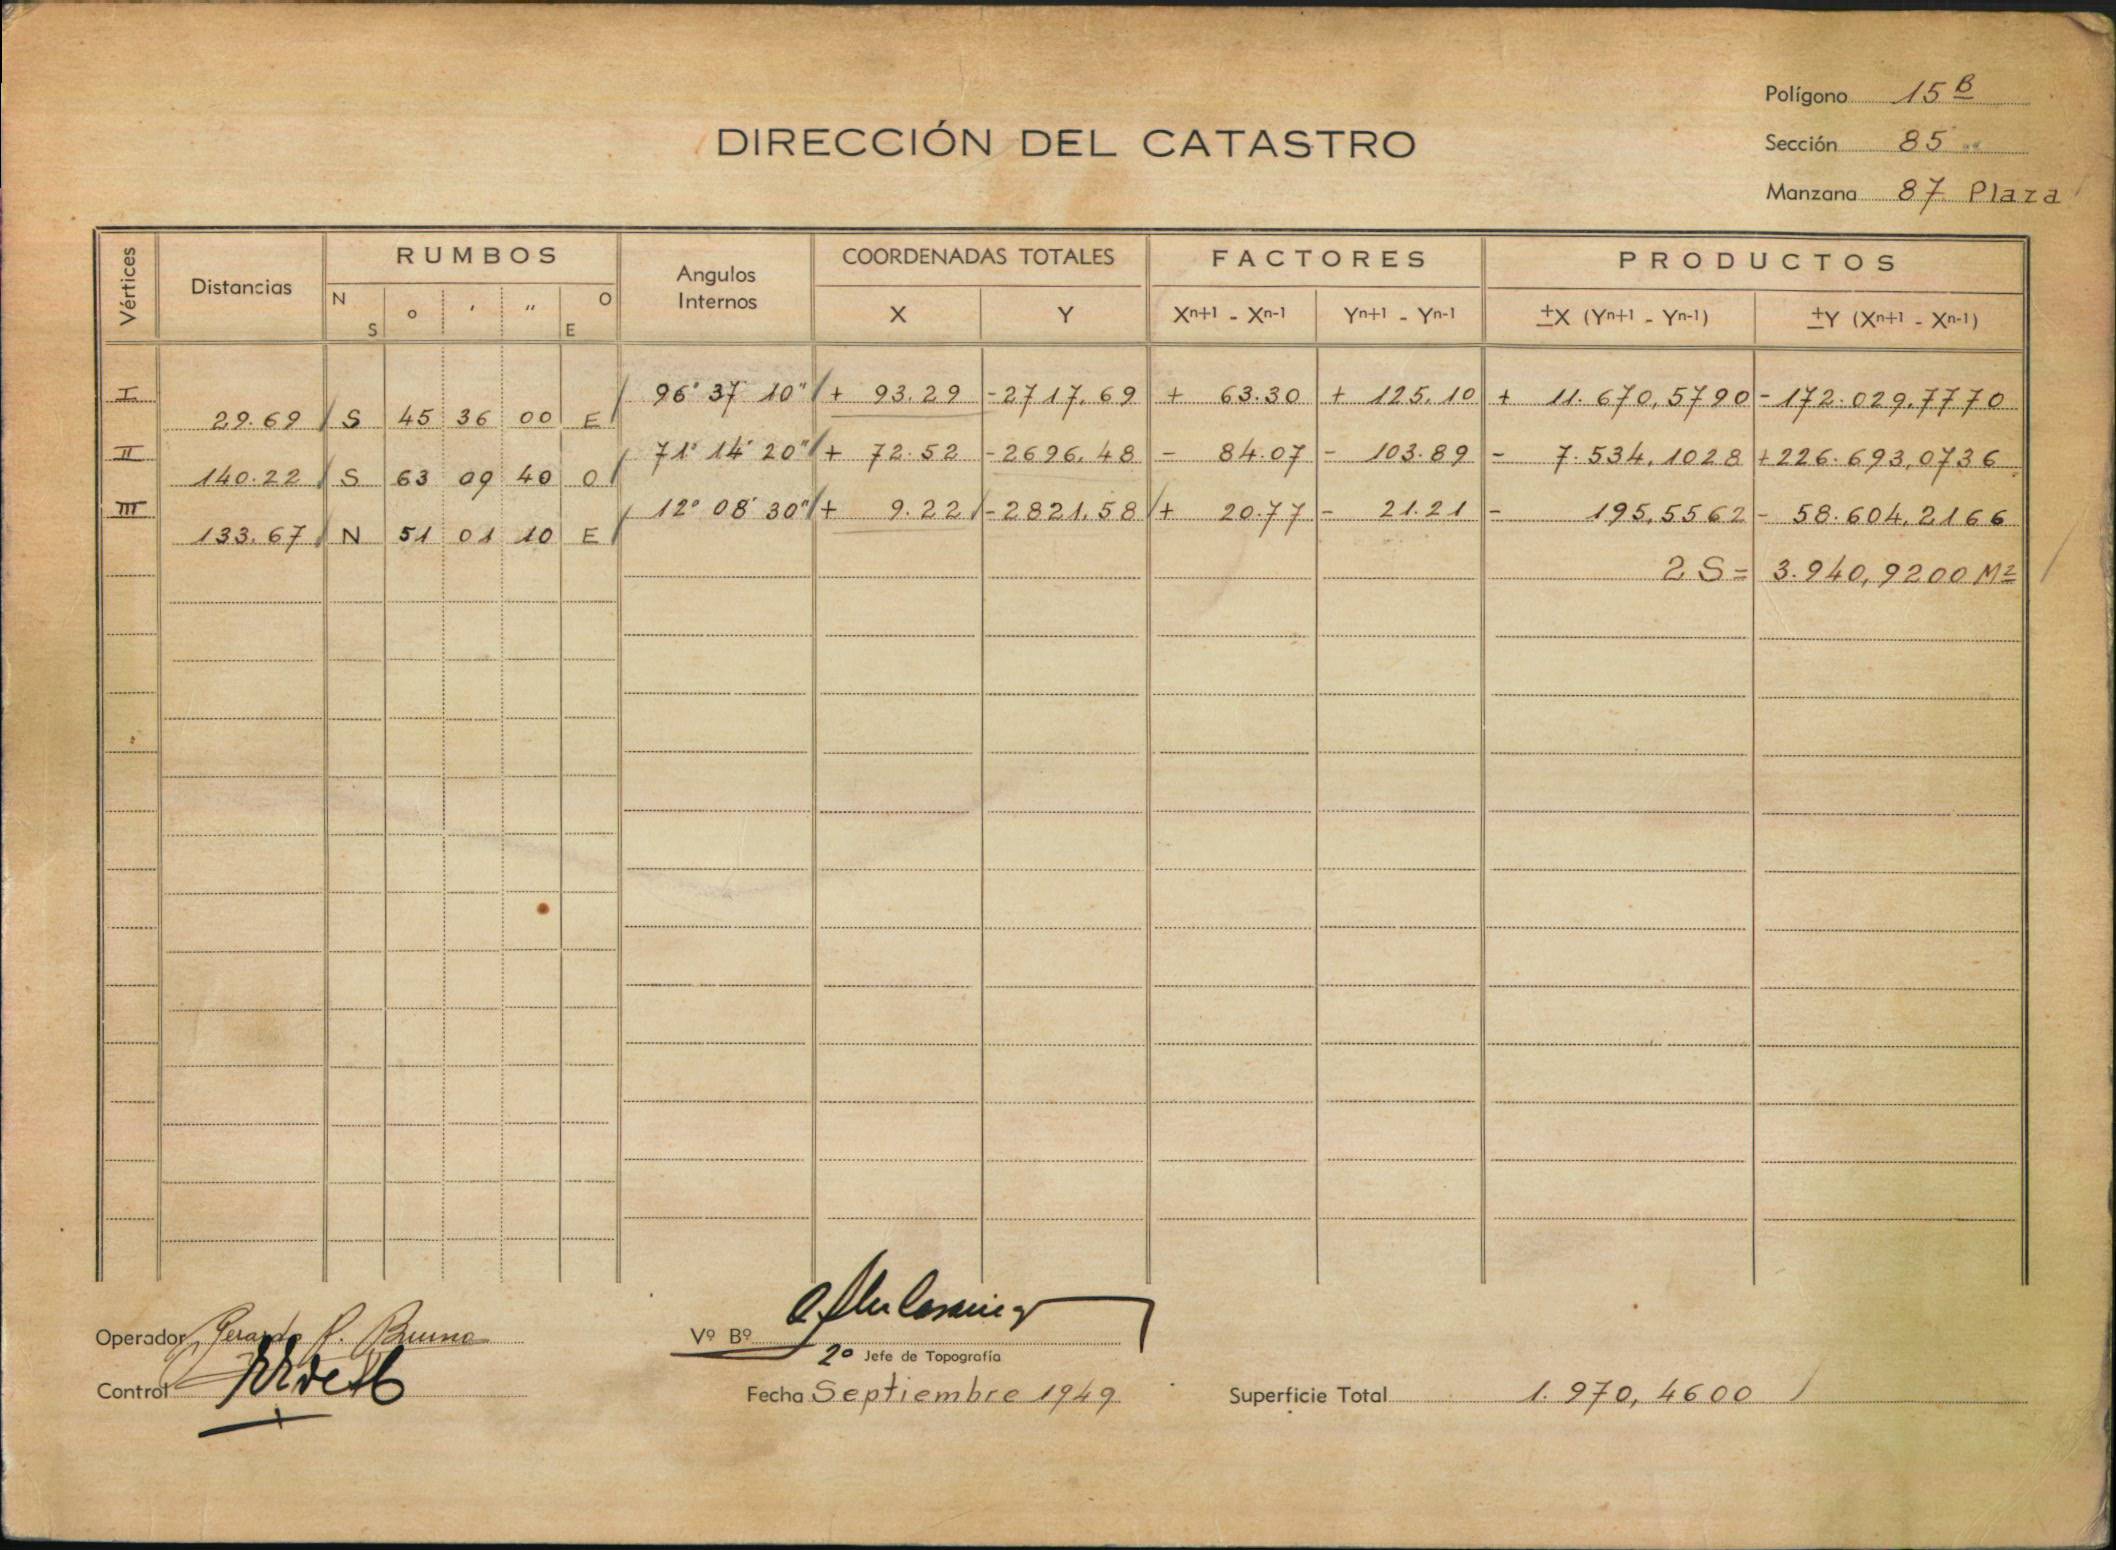 Polígono 15 B
DIRECCIÓN DEL CATASTRO
Sección 85
Manzana 87 Plaza
Vértices Distancias RUMBOS Angulos Internos COORDENADAS TOTALES FACTORES PRODUCTOS
N S o ' " O E X Y Xn+1 - Xn-1 Yn+1 - Yn-1 ±X (Yn+1 - Yn-1) ±Y (Xn+1 - Xn-1)
I 96° 37' 10" + 93.29 -2717.69 + 63.30 + 125.10 + 11.670,5790 -172.029,7770
29.69 S 45 36 00 E
II 71° 14' 20" + 72.52 -2696.48 - 84.07 - 103.89 - 7.534,1028 +226.693,0736
140.22 S 63 09 40 O
III 12° 08' 30" + 9.22 -2821.58 + 20.77 - 21.21 - 195,5562 - 58.604,2166
133.67 N 51 01 10 E
2 S = 3.940,9200 M2
Operador Gerardo R. Bruno
Vº Bº
2º Jefe de Topografía
Control
Fecha Septiembre 1949
Superficie Total 1.970,4600